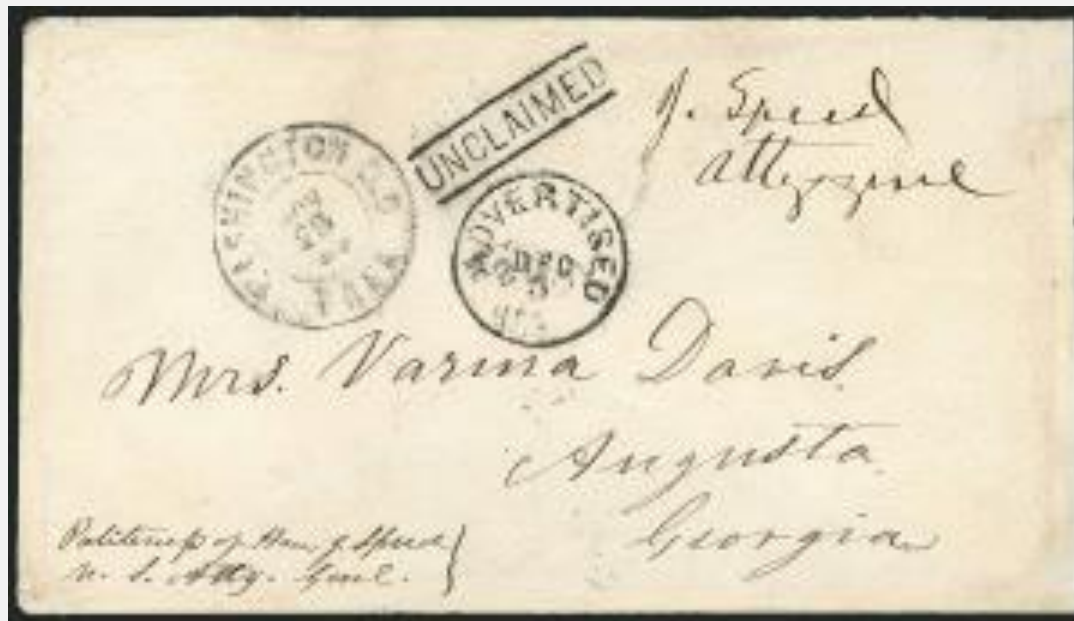 UNCLAIMED
J. Speed
Atty genl
WASHINGTON D.C.
FREE
ADVERTISED
DEC
Mrs. Varina Davis
Augusta
Georgia
Politeness of Hon. J. Speed
U. S. Atty. Genl.